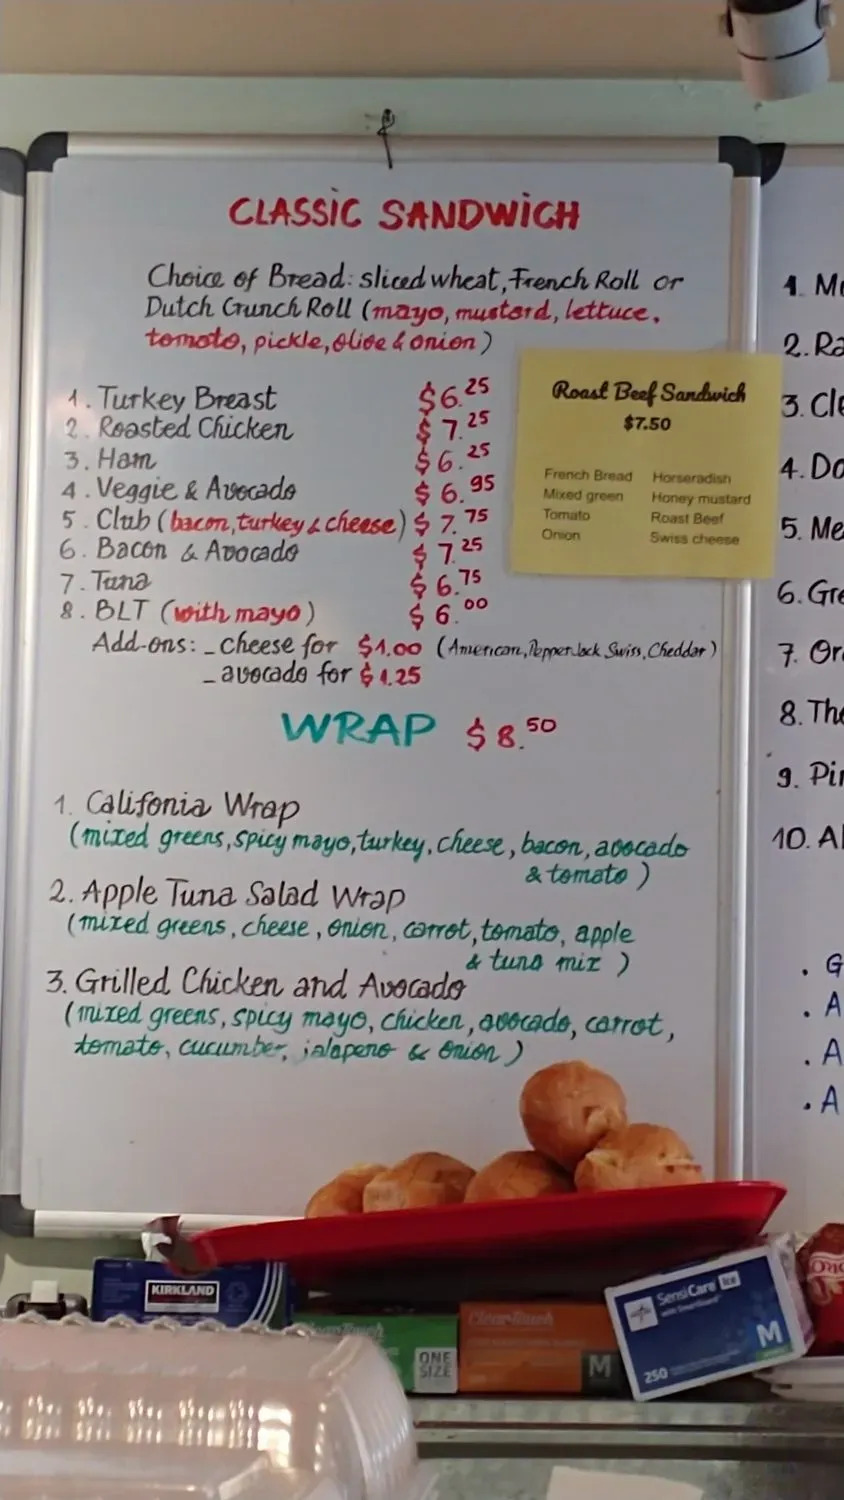 CLASSIC SANDWICH
Choice of Bread: sliced wheat, French Roll or
Dutch Crunch Roll (mayo, mustard, lettuce,
tomato, pickle, olive & onion)
1. Turkey Breast $6.25
2. Roasted Chicken $7.25
3. Ham $6.25
4. Veggie & Avocado $6.95
5. Club (bacon, turkey & cheese) $7.75
6. Bacon & Avocado $7.25
7. Tuna $6.75
8. BLT (with mayo) $6.00
Add-ons: - cheese for $1.00 (American, Pepper Jack Swiss, Cheddar)
- avocado for $1.25
Roast Beef Sandwich
$7.50
French Bread Horseradish
Mixed green Honey mustard
Tomato Roast Beef
Onion Swiss cheese
WRAP $8.50
1. Califonia Wrap
(mixed greens, spicy mayo, turkey, cheese, bacon, avocado
& tomato)
2. Apple Tuna Salad Wrap
(mixed greens, cheese, onion, carrot, tomato, apple
& tuna mix)
3. Grilled Chicken and Avocado
(mixed greens, spicy mayo, chicken, avocado, carrot,
tomato, cucumber, jalapeno & onion)
1.
2.
3.
4.
5.
6.
7.
8.
9.
10.
KIRKLAND
ClearTouch
ONE
SIZE
ClearTouch
M
SensiCare Ice
M
250